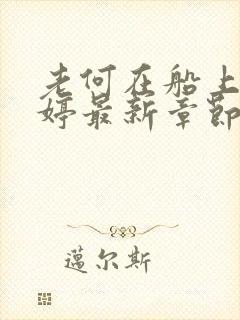 老何在船上
婷最新章节
蓝尔斯